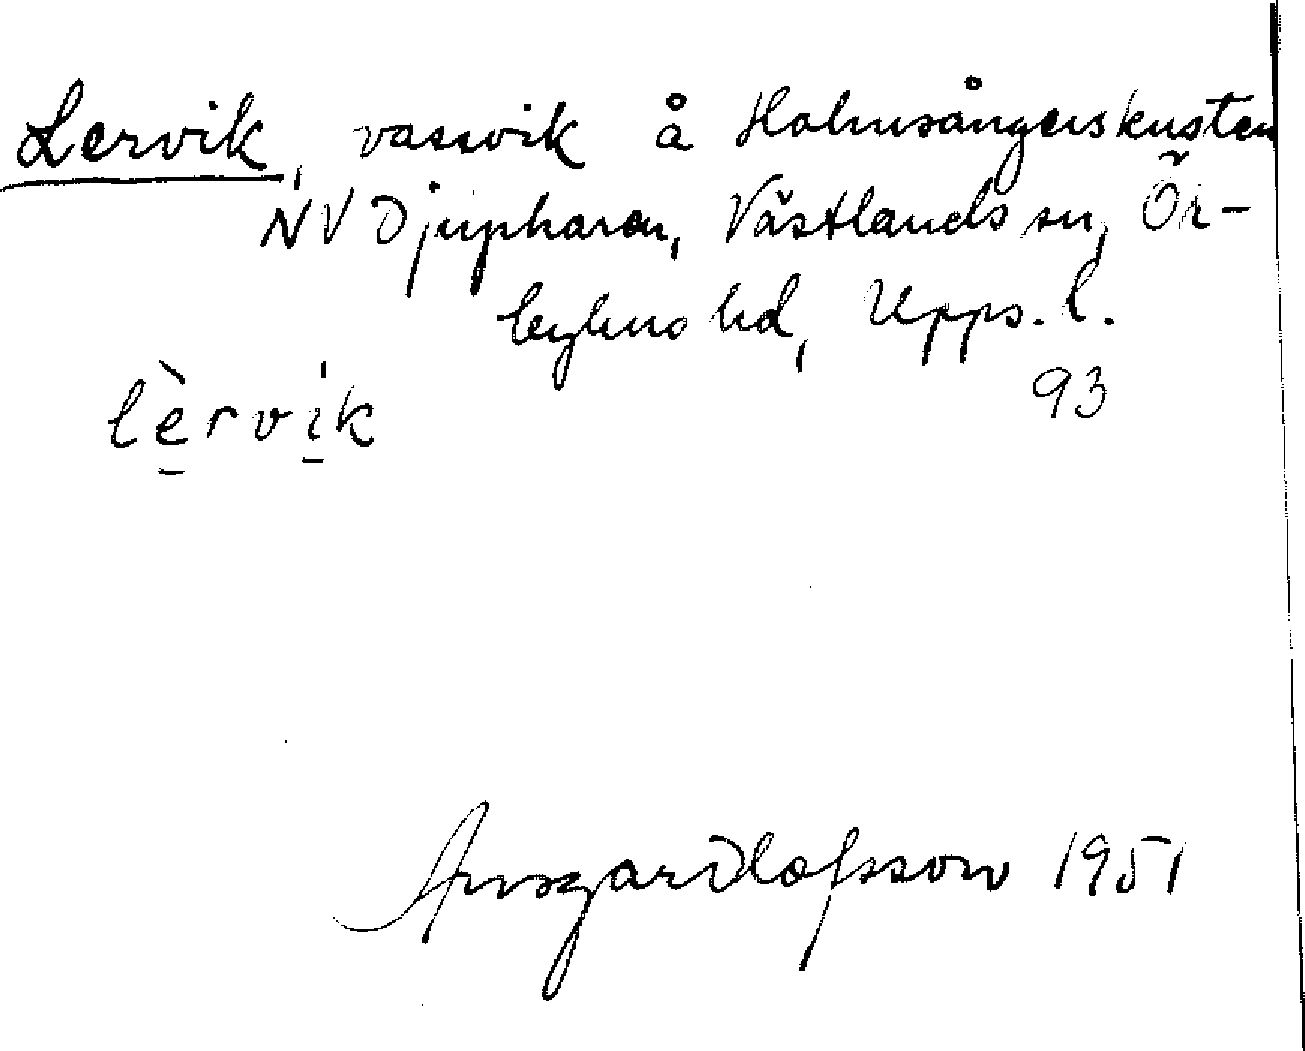 Lervik, vassvik å Holmsångerskusten
NV Djupharen, Västlands sn, Ör-
byhus hd, Upps. l.
93
lèrvik
Ansgar Olofsson 1951